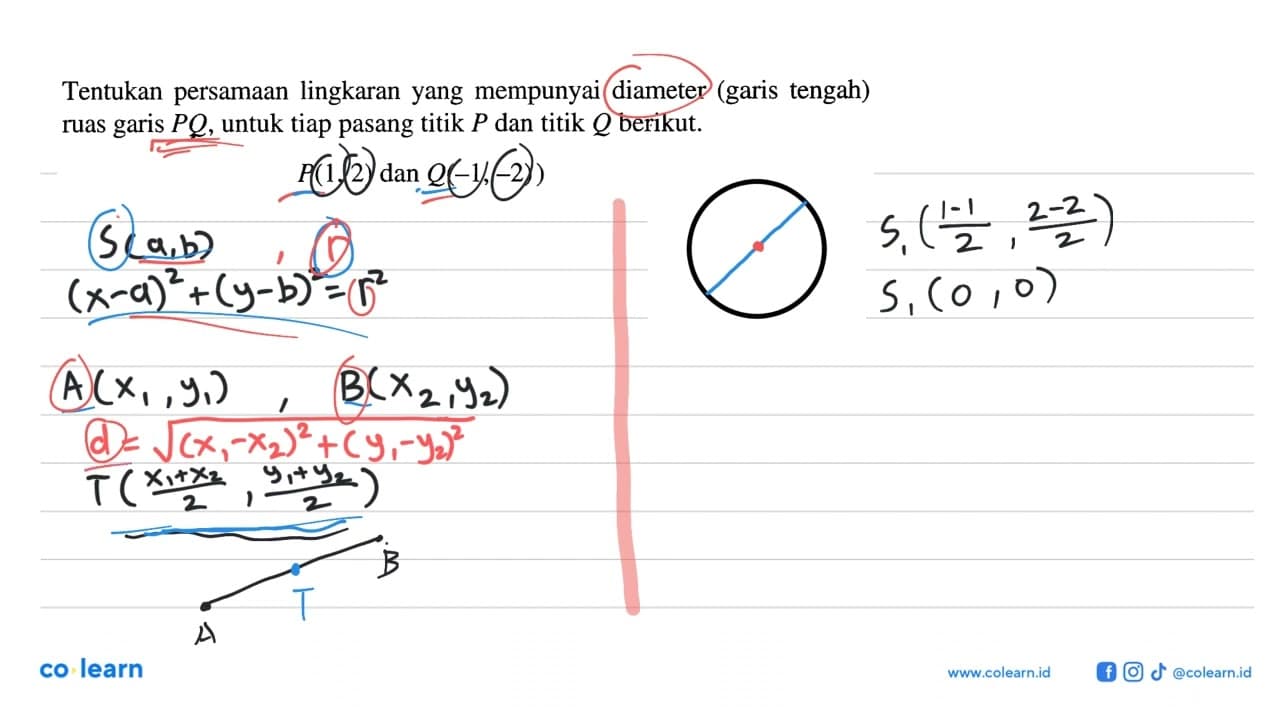 Tentukan persamaan lingkaran yang mempunyai diameter (garis tengah)
ruas garis PQ, untuk tiap pasang titik P dan titik Q berikut.
P(1, 2) dan Q(-1, -2)
S(a,b) , r
(x-a)² + (y-b)² = r²
A(x₁, y₁) , B(x₂, y₂)
d = √(x₁-x₂)² + (y₁-y₂)²
T(x₁+x₂/2 , y₁+y₂/2)
B
T
A
S, (1-1/2 , 2-2/2)
S, (0, 0)
co learn
www.colearn.id
@colearn.id